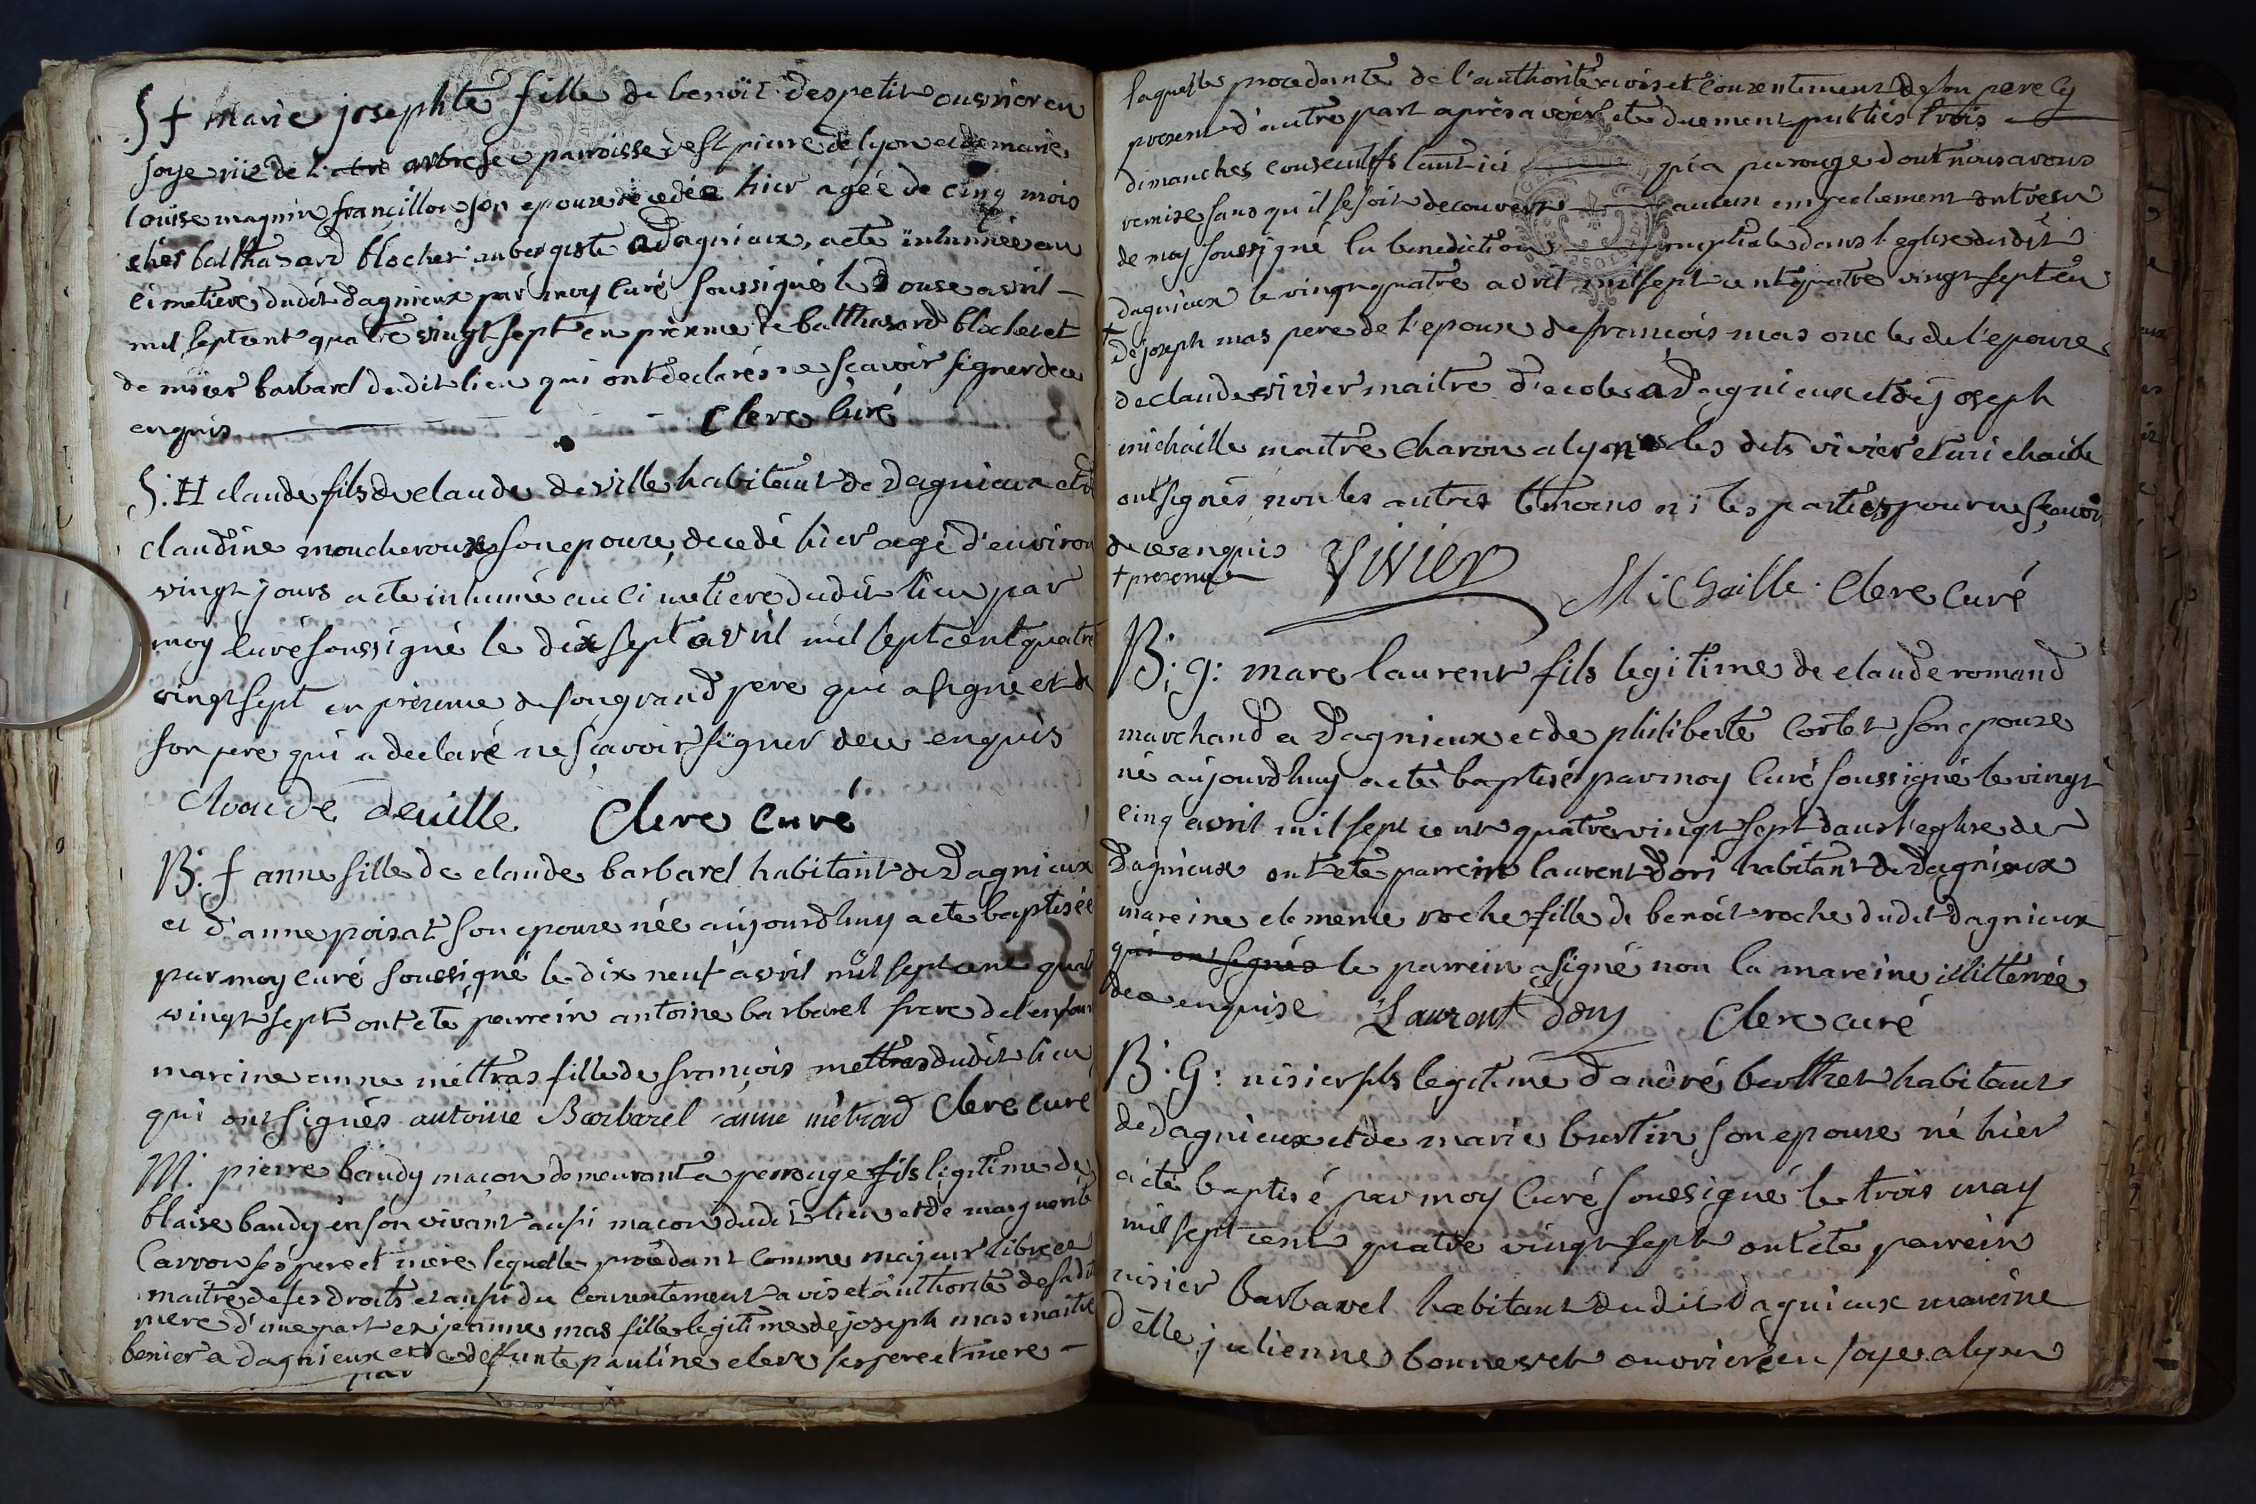 S f marie josephte fille de benoit despetit ouvrier en
soye rüe de l'arbre sec parroisse de st pierre de lyon et de marie
loüise magnin francillon son epouze decedée hier agée de cinq mois
chés balthasard blocher aubergiste a dagnieux, a eté inhumée au
cimetiere dudit dagnieux par moy curé soussigné le douse avril –
mil sept cent quatre vingt sept en présence de balthasard blocher et
de nisier barbarel dudit lieu qui ont declarés ne sçavoir signer de ce
enquis Clere curé
S. H claude fils de claude deville habitant de dagnieux et de
claudine moucheroux son epouze, decedé hier agé d'environ
vingt jours a eté inhumé au cimetiere dudit lieu par
moy curé soussigné le dix sept avril mil sept cent quatre
vingt sept en présence de son grand pere qui a signé et de
son pere qui a declaré ne sçavoir signer de ce enquis
Claude deville Clere curé
B. f anne fille de claude barbarel habitant de dagnieux
et d'anne poizat son epouze née aujourdhuy a eté baptisée
par moy curé soussigné le dix neuf avril mil sept cent quatre
vingt sept ont eté parrein antoine barbarel frere de l'enfant
mareine anne mettras fille de françois mettras dudit lieu
qui ont signés antoine Barbarel anne métrad Clere curé
M. pierre baudy maçon demeurant a perrouge fils legitime de
blaise baudy en son vivant aussi maçon dudit lieu et de marguerite
Carron ses pere et mere lequelle procédant comme majeur libre et
maitre de ses droits et aussi du consentement avis et authorité de sadite
mere d'une part et jeanne mas fille legitime de joseph mas maitre
benier a dagnieux et de deffunte pauline clere ses pere et mere –
par
laquelle procedante de l'authorité avis et consentement de son pere cy
present d'autre part après avoir eté duement publiés trois
dimanches consecutifs tant ici qu'a perouge dont nous avons
remise sans qu'il se soit decouvert aucun empechement ont reçu
de moy soussigné la benediction nuptiale dans l'eglise dudit
dagnieux le vingt quatre avril mil sept cent quatre vingt sept en
† de joseph mas pere de l'epouse de francois mas oncle de l'epouze
de claude vivier maitre d'ecole a dagnieux et de joseph
michaille maitre charon a lyon les dits vivier et michaille
ont signés non les autres temoins ni les parties pour ne sçavoir
de ce enquis Vivier
† presence Michaille . Clere curé
B: g: marc laurent fils legitime de claude romand
marchand a dagnieux et de philiberte cortet son epouze
né aujourdhuy a eté baptisé par moy curé soussigné le vingt
cinq avril mil sept cent quatre vingt sept dans l'eglise de
dagnieux ont eté parrein laurent dori habitant de dagnieux
mareine clemence roche fille de benoit roche dudit dagnieux
qui ont signés le parrein a signé non la mareine illitérée
de ce enquise Laurent dory Clere curé
B. G: nisier fils legitime d'andré berthet habitant
de dagnieux et de marie burtin son epouze né hier
a eté baptisé par moy curé soussigné le trois may
mil sept cent quatre vingt sept ont eté parrein
nisier barbarel habitant dudit dagnieux mareine
d'elle julienne bonnevet ouvriere en soye a lyon